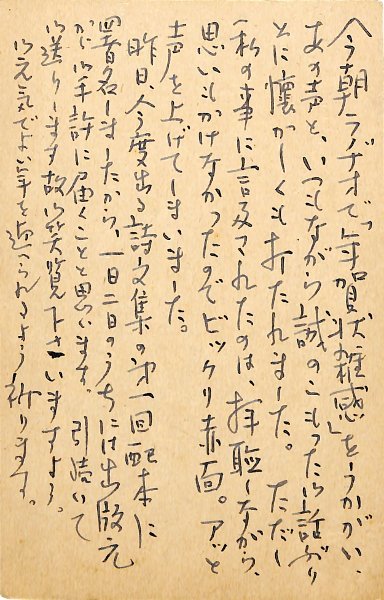 今朝ラヂオで「年賀状雑感」をうかがい、
あの声と、いつもながら誠のこもったお話ぶり
とに懐かしくも打たれました。ただし
私の事に言及されたのは、拝聴しながら、
思いもかけなかったのでビックリ赤面。アッと
声を上げてしまいました。
昨日、今度出る詩文集の第一回配本に
署名しましたから、一日二日のうちには出版元
から御手許に届くことと思います。引続いて
御送りします故御笑覧下さいますよう。
御元気でよい年を迎へられるよう祈ります。